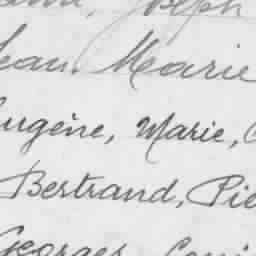 Joseph
Jean. Marie
Eugène, Marie,
Bertrand, Pie
Georges Loui